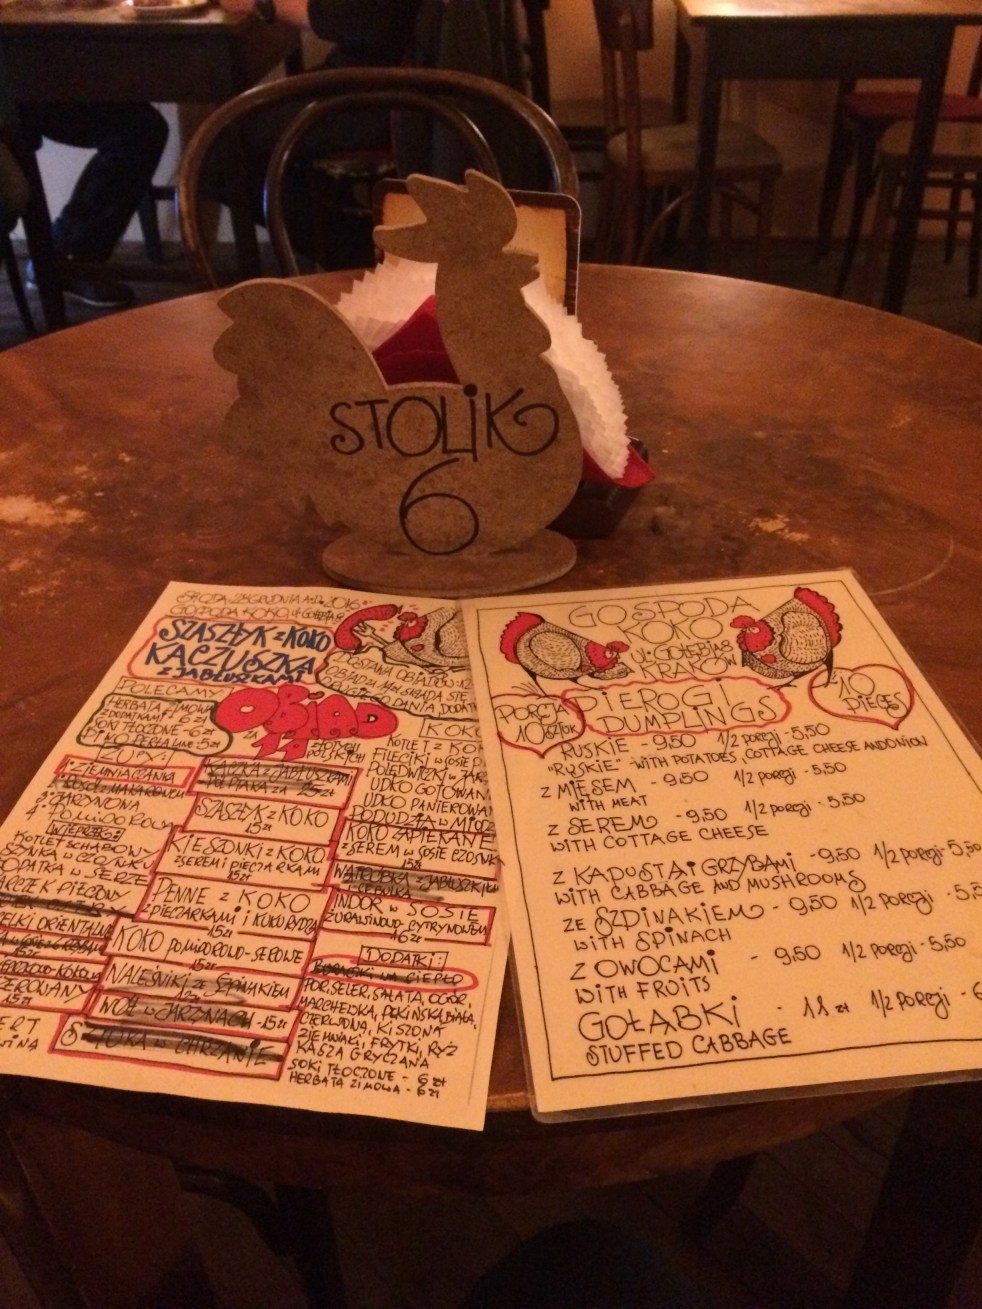 STOLIK
6
ŚRODA 28 GRUDNIA 2016
GOSPODA KOKO UL. GOŁĘBIA 8
SZASZŁYK Z KOKO
KACZUSZKA
Z JABŁUSZKAMI
POLECAMY
HERBATA ZIMOWA
- 6 zł
SOKI TŁOCZONE - 6 zł
- 5 zł
OBIAD
ZA 14
ZŁOTYCH
POLSKICH
ZUPY:
1. ZIEMNIACZANKA
3. JARZYNOWA
4. POMIDOROWA
WIEPRZEK:
KOTLET SCHABOWY
SZYNKA W CZOSNKU
W SERZE
PIECZONY
ORIENTALNE
KACZKA Z JABŁUSZKAMI
SZASZŁYK Z KOKO
15 zł
KIESZONKI Z KOKO
Z SEREM I PIECZARKAMI
15 zł
PENNE Z KOKO
Z PIECZARKAMI I KUKURYDZĄ
15 zł
KOKO POMIDOROWO-SEROWE
15 zł
NALEŚNIKI ZE SZPINAKIEM
WÓŁ W JARZYNACH - 15 zł
SZTUKA W CHRZANIE
KOKO
KOTLET Z
FILECIKI W SOSIE
POLĘDWICZKI W
UDKO GOTOWAN
UDKO PANIEROWA
PODUDZIA W MIODZ
KOKO ZAPIEKANE
Z SEREM W SOSIE CZOSNK
WĄTRÓBKA Z JABŁUSZKIEM
I CEBULĄ
INDOR W SOSIE
ŻURAWINOWO-CYTRYNOWYM
16 zł
DODATKI:
BURACZKI NA CIEPŁO
POR, SELER, SAŁATA, OGÓR,
MARCHEWKA, PEKIŃSKA, BIAŁA,
CZERWONA, KISZONA
ZIEMNIAKI, FRYTKI, RYŻ
KASZA GRYCZANA
SOKI TŁOCZONE - 6 zł
HERBATA ZIMOWA - 6 zł
GOSPODA
KOKO
UL. GOŁĘBIA 8
KRAKÓW
PORCJA
10 SZTUK
PIEROGI
DUMPLINGS
10
PIECES
RUSKIE - 9,50 1/2 porcji - 5,50
"RUSKIE" - WITH POTATOES, COTTAGE CHEESE AND ONION
Z MIĘSEM - 9,50 1/2 porcji - 5,50
WITH MEAT
Z SEREM - 9,50 1/2 porcji - 5,50
WITH COTTAGE CHEESE
Z KAPUSTĄ I GRZYBAMI - 9,50 1/2 porcji - 5,50
WITH CABBAGE AND MUSHROOMS
ZE SZPINAKIEM - 9,50 1/2 porcji - 5,5
WITH SPINACH
Z OWOCAMI - 9,50 1/2 porcji - 5,50
WITH FRUITS
GOŁĄBKI - 18 zł 1/2 porcji -
STUFFED CABBAGE